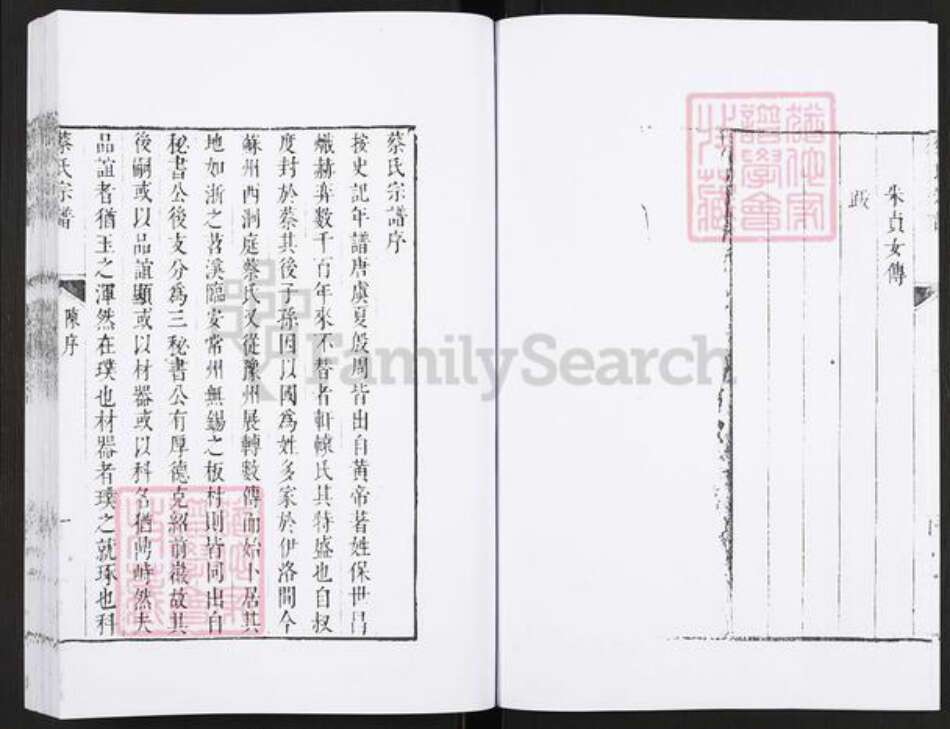 朱貞女傳
跋
蔡氏宗譜序
按史記年譜唐虞夏殷周皆出自黃帝著姓保世呂
熾赫弈數千百年來不替者軒轅氏其特盛也自叔
度封於蔡其後子孫因以國為姓多家於伊洛間今
蘇州西洞庭蔡氏又從豫州展轉數傳而始卜居其
地如浙之苕溪臨安常州無錫之板村則皆同出自
秘書公後支分為三秘書公有厚德克紹前徽故其
後嗣或以品誼顯或以材器或以科名猶時然夫
品誼者猶玉之渾然在璞也材器者璞之就琢也科
蔡氏宗譜
陳序
一
FamilySearch